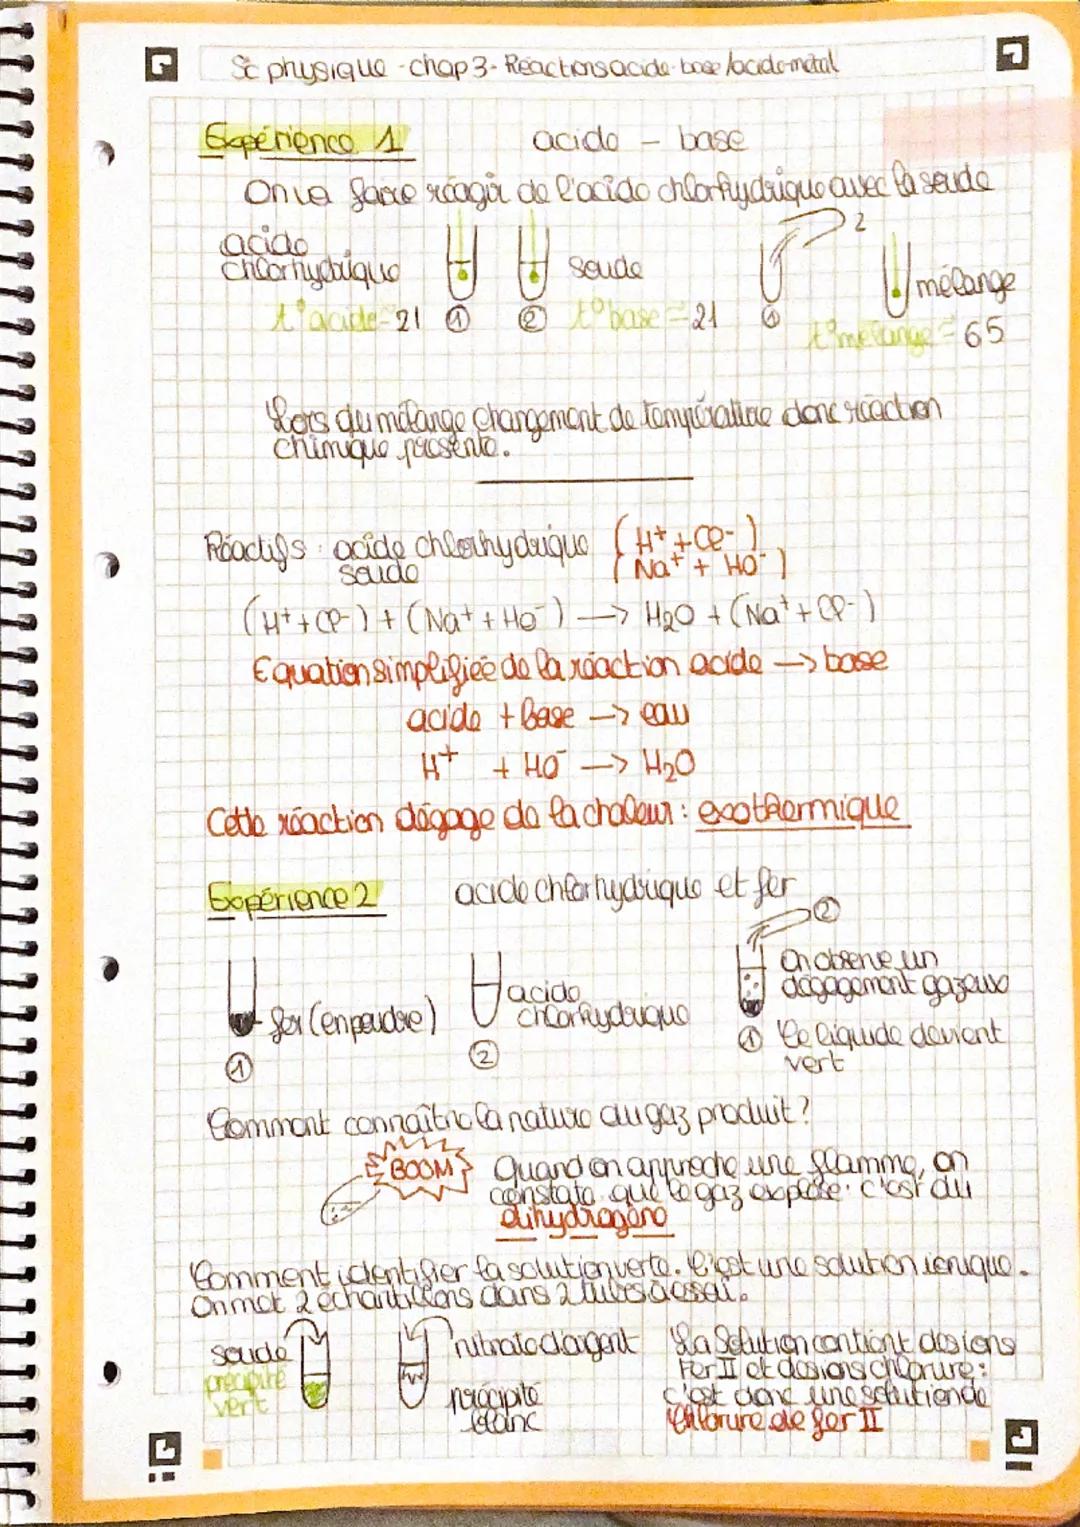 Sc physique - chap 3 - Réactions acide-base / acide-métal
Expérience 1
acide - base
On va faire réagir de l'acide chlorhydrique avec la soude
acide
chlorhydrique
soude
2
mélange
t° acide = 21
1
2
t° base = 21
1
t° mélange = 65
Lors du mélange changement de température donc réaction
chimique présente.
Réactifs : acide chlorhydrique (H+ + Cl-)
soude (Na+ + HO-)
(H+ + Cl-) + (Na+ + HO-) → H2O + (Na+ + Cl-)
Equation simplifiée de la réaction acide → base
acide + base → eau
H+ + HO- → H2O
Cette réaction dégage de la chaleur : exothermique
Expérience 2
acide chlorhydrique et fer
2
fer (en poudre)
acide
chlorhydrique
On observe un
dégagement gazeux
1
2
1
Le liquide devient
vert
Comment connaître la nature du gaz produit ?
BOOM
Quand on approche une flamme, on
constate que le gaz explose : c'est du
dihydrogène
Comment identifier la solution verte. C'est une solution ionique.
On met 2 échantillons dans 2 tubes à essai.
soude
précipité
vert
nitrate d'argent
précipité
blanc
La solution contient des ions
Fer II et des ions chlorure :
c'est donc une solution de
Chlorure de fer II